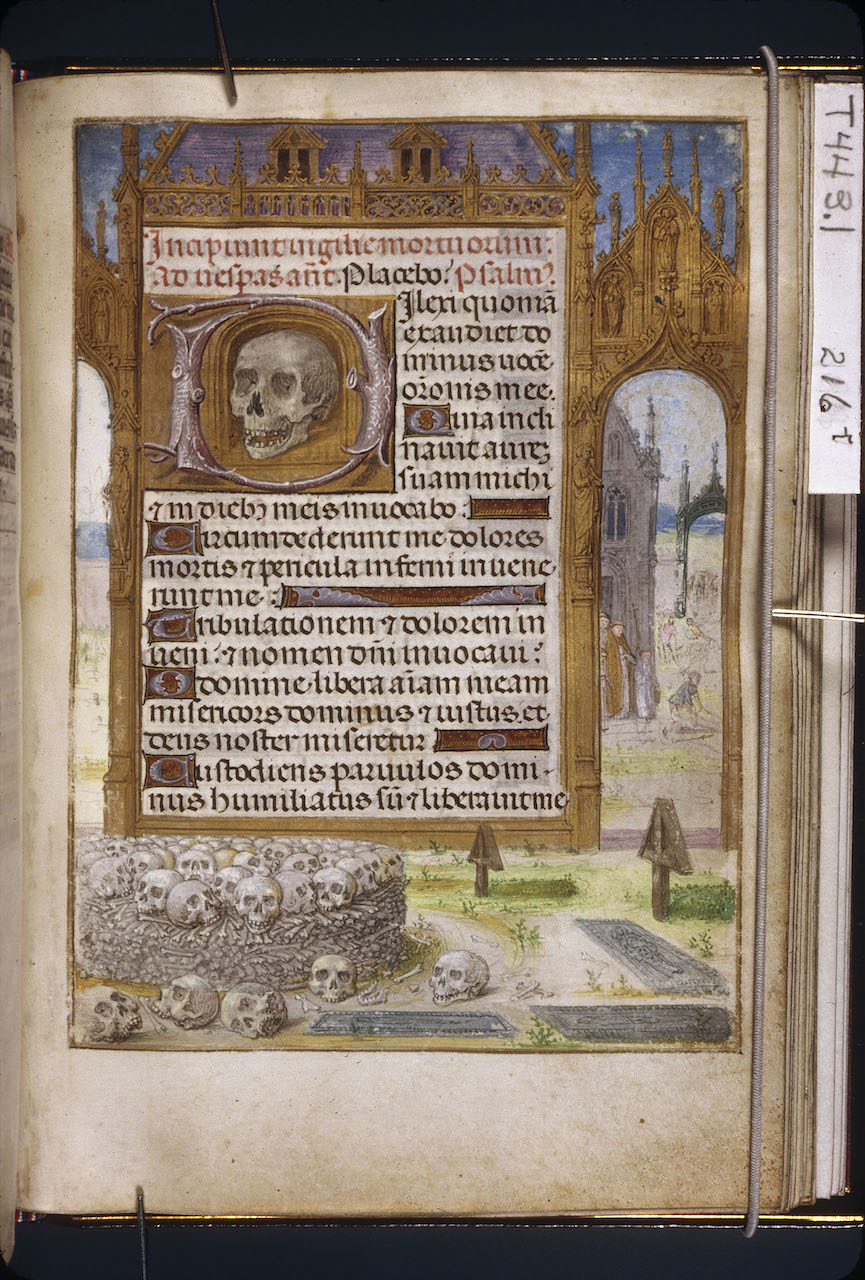 Incipiunt vigilie mortuorum:
Ad vesp̄as añt. Placebo. Psalm⁹.
Dilexi quoniā
exaudiet do
minus vocē
or̄onis mee.
Quia incli
navit aureʒ
suam michi
⁊ in dieb⁹ meis invocabo :
Circumdederunt me dolores
mortis ⁊ pericula inferni invene
runt me :
Tribulationem ⁊ dolorem in
veni : ⁊ nomen dn̄i invocavi :
O domine libera aīam meam
misericors dominus ⁊ iustus et
deus noster miseretur
Custodiens parvulos domi
nus humiliatus sū ⁊ liberavit me
T443.1
216r